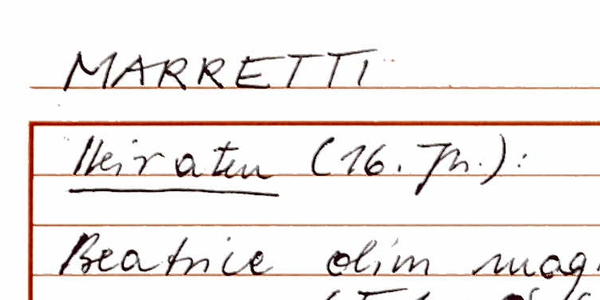 MARRETTI
Heiraten (16. Jh.):
Beatrice olim mag